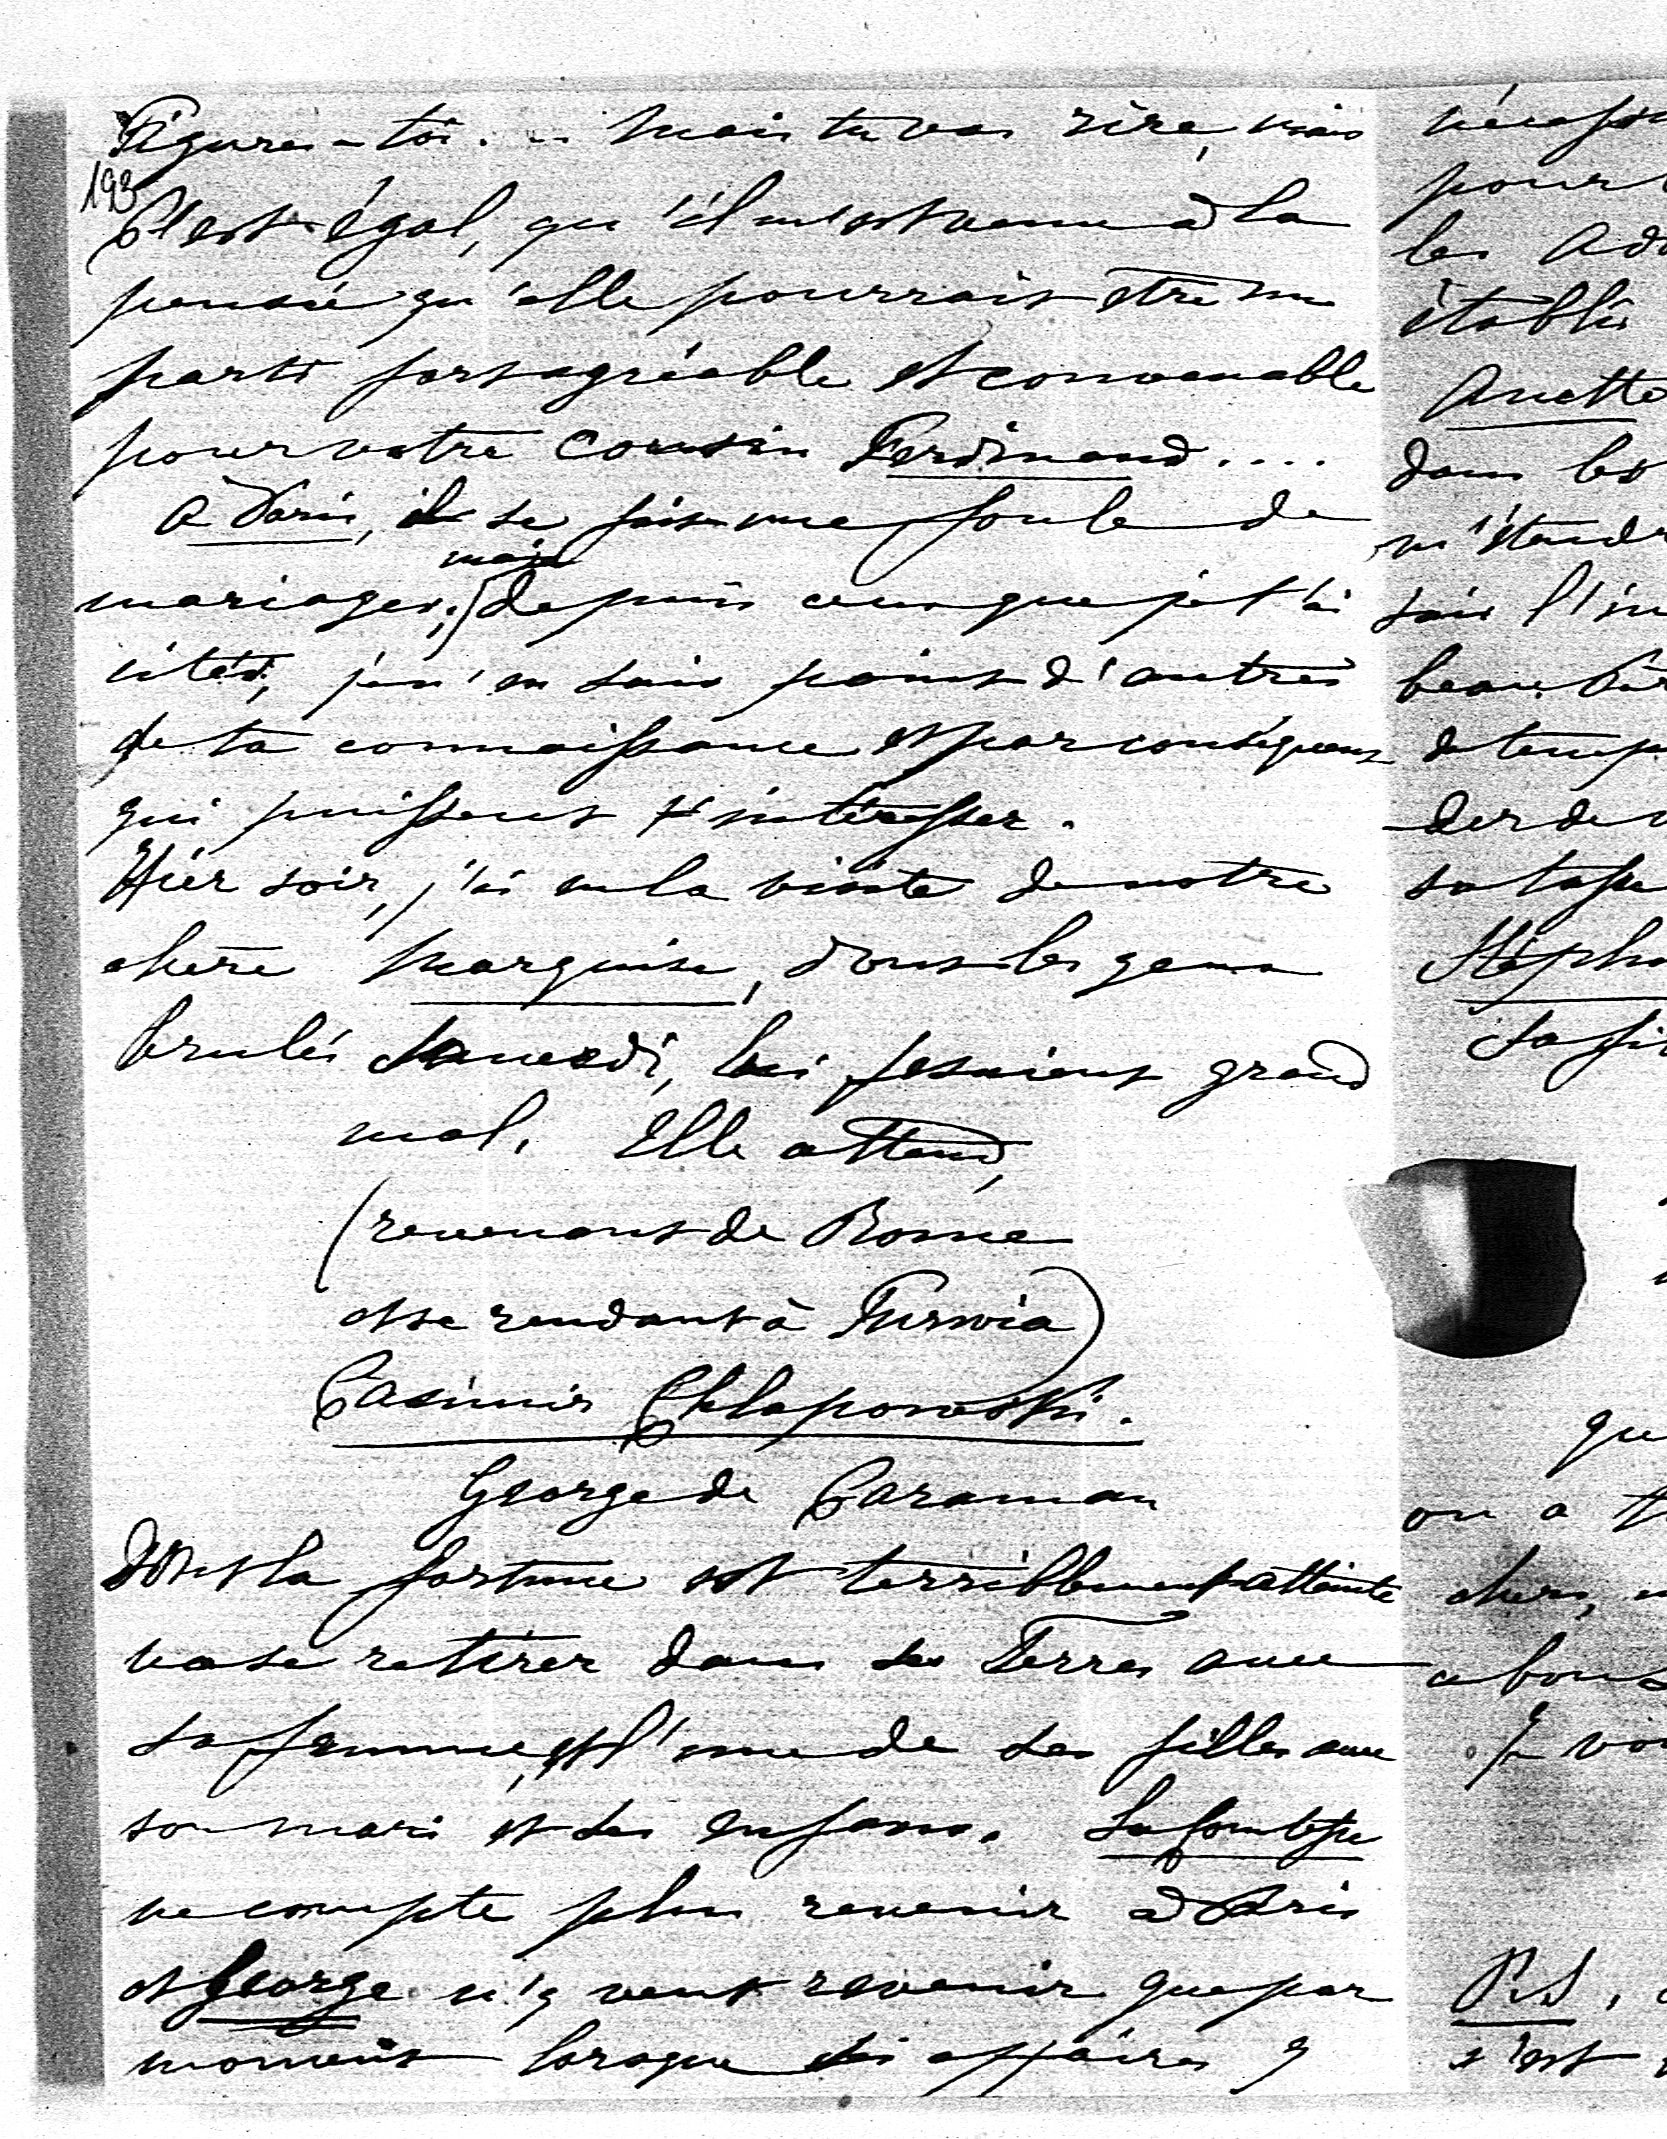 Figures-toi... mais tu vas rire, mais
193
C'est égal, qu'il m'est venu à la
pensée qu'elle pourrait être un
parti fort agréable et convenable
pour votre Cousin Ferdinand....
à Paris, il se fait une foule de
mais
mariages; depuis ceux que je t'ai
cités, je n'en sais point d'autres
de ta connaissance et par conséquent
qui puissent t'intéresser.
Hier soir, j'ai eu la visite de notre
chère Marquise, dont les genoux
brulés Samedi, lui fesaient grand
mal. Elle attend,
(revenant de Rome
et se rendant à Turwia)
Casimir Chlapowski.
George de Caraman
dont la fortune est terriblement atteinte
va se retirer dans ses Terres avec
sa femme, et l'une de ses filles avec
son mari et ses enfans. La Comtesse
ne compte plus revenir à Paris
et George n'y veut revenir que par
moment lorsque ses affaires y
pour
les
établis
Anette
dans les
m'étendre
beau
de temps
der de
qu
on a
chers,
P.S.,
s'est